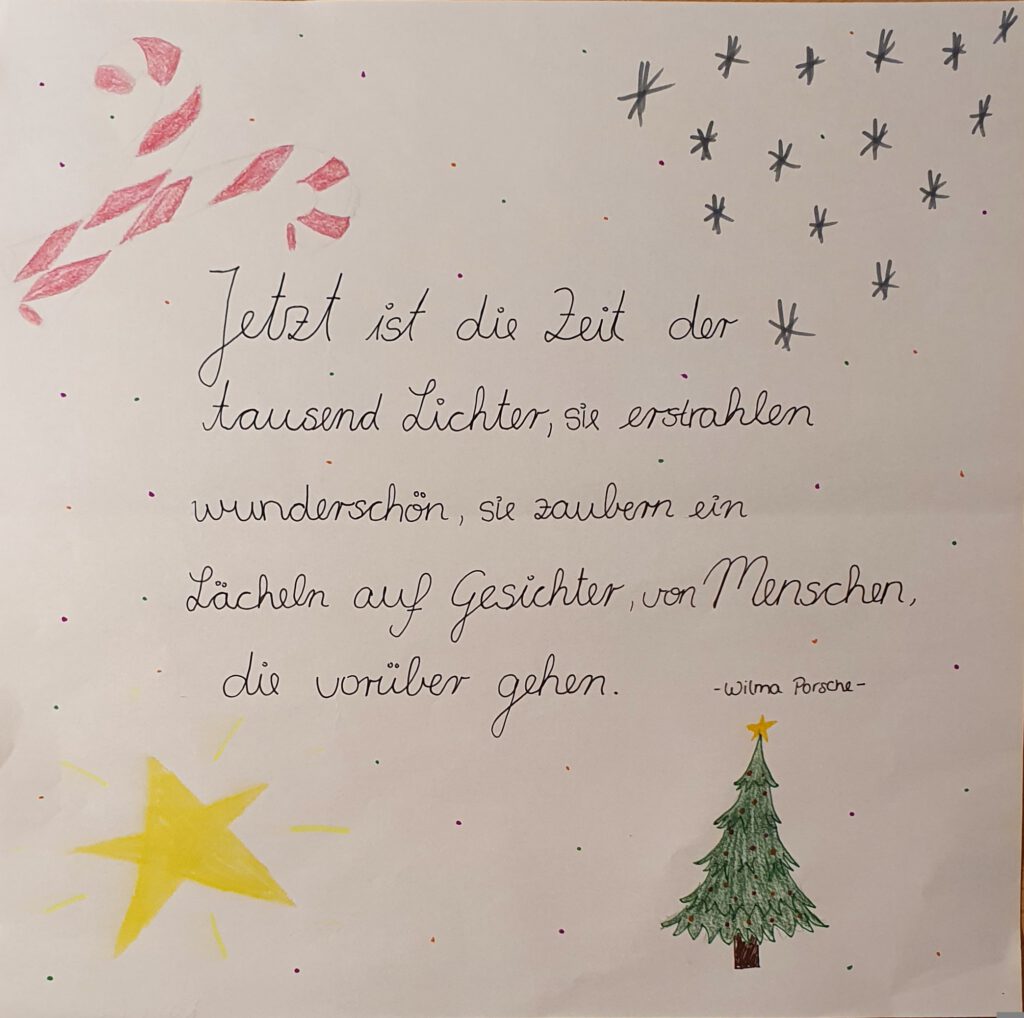 Jetzt ist die Zeit der
tausend Lichter, sie erstrahlen
wunderschön, sie zaubern ein
Lächeln auf Gesichter, von Menschen,
die vorüber gehen.
-Wilma Porsche-